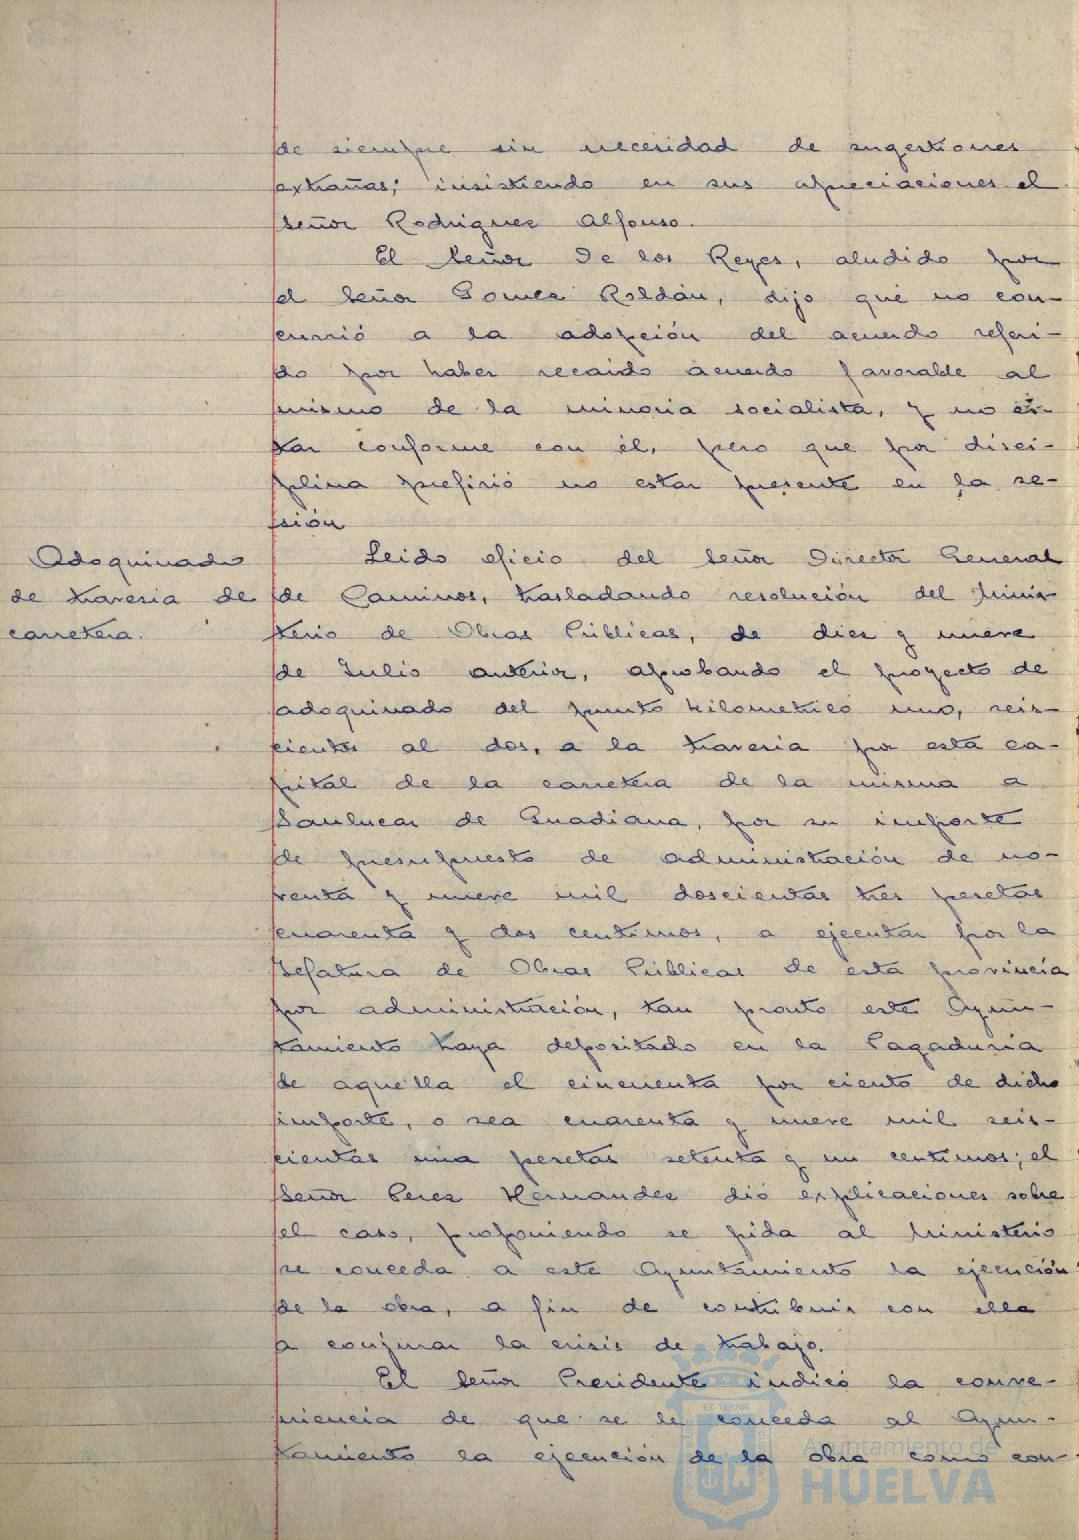 de siempre sin necesidad de sugestiones
extrañas; insistiendo en sus apreciaciones el
Señor Rodriguez Alfonso.
El Señor De los Reyes, aludido por
el Señor Gomez Roldán, dijo que no con-
currió a la adopción del acuerdo referi-
do por haber recaido acuerdo favorable al
mismo de la minoria socialista, y no es-
tar conforme con él, pero que por disci-
plina prefirió no estar presente en la se-
sión
Adoquinado
de travesia de
carretera.
Leido oficio del Señor Director General
de Caminos, trasladando resolución del Minis-
terio de Obras Públicas, de diez y nueve
de Julio anterior, aprobando el proyecto de
adoquinado del punto kilometrico uno, seis-
cientos al dos, a la travesia por esta ca-
pital de la carretera de la misma a
Sanlucar de Guadiana, por su importe
de presupuesto de administración de no-
venta y nueve mil doscientas tres pesetas
cuarenta y dos centimos, a ejecutar por la
Jefatura de Obras Públicas de esta provincia
por administración, tan pronto este Ayun-
tamiento haya depositado en la Pagaduria
de aquella el cincuenta por ciento de dicho
importe, o sea cuarenta y nueve mil seis-
cientas una pesetas setenta y un centimos; el
Señor Perez Hernandez dió explicaciones sobre
el caso, proponiendo se pida al Ministerio
se conceda a este Ayuntamiento la ejecución
de la obra, a fin de contribuir con ella
a conjurar la crisis de trabajo.
El Señor Presidente indicó la conve-
niencia de que se le conceda al Ayun-
tamiento la ejecución de la obra como con-
Ayuntamiento de
HUELVA